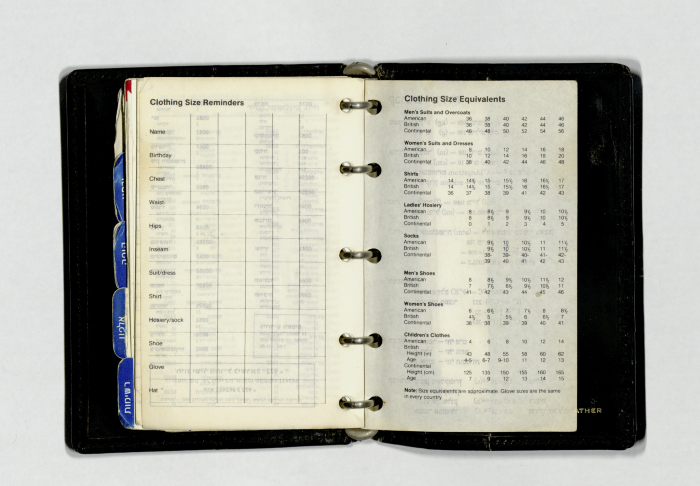 Clothing Size Reminders
Name
Birthday
Chest
Waist
Hips
Inseam
Suit/dress
Shirt
Hosiery/sock
Shoe
Glove
Hat
Clothing Size Equivalents
Men's Suits and Overcoats
American 36 38 40 42 44 46
British 36 38 40 42 44 46
Continental 46 48 50 52 54 56
Women's Suits and Dresses
American 8 10 12 14 16 18
British 10 12 14 16 18 20
Continental 38 40 42 44 46 48
Shirts
American 14 14½ 15 15½ 16 16½ 17
British 14 14½ 15 15½ 16 16½ 17
Continental 36 37 38 39 41 42 43
Ladies' Hosiery
American 8 8½ 9 9½ 10 10½
British 8 8½ 9 9½ 10 10½
Continental 0 1 2 3 4 5
Socks
American 9 9½ 10 10½ 11 11½
British 9 9½ 10 10½ 11 11½
Continental 38- 39- 40- 41- 42-
39 40 41 42 43
Men's Shoes
American 8 8½ 9½ 10½ 11½ 12
British 7 7½ 8½ 9½ 10½ 11
Continental 41 42 43 44 45 46
Women's Shoes
American 6 6½ 7 7½ 8 8½
British 4½ 5 5½ 6 6½ 7
Continental 38 38 39 39 40 41
Children's Clothes
American 4 6 8 10 12 14
British
Height (in) 43 48 55 58 60 62
Age 4-5 6-7 9-10 11 12 13
Continental
Height (cm) 125 135 150 155 160 165
Age 7 9 12 13 14 15
Note: Size equivalents are approximate. Glove sizes are the same
in every country.